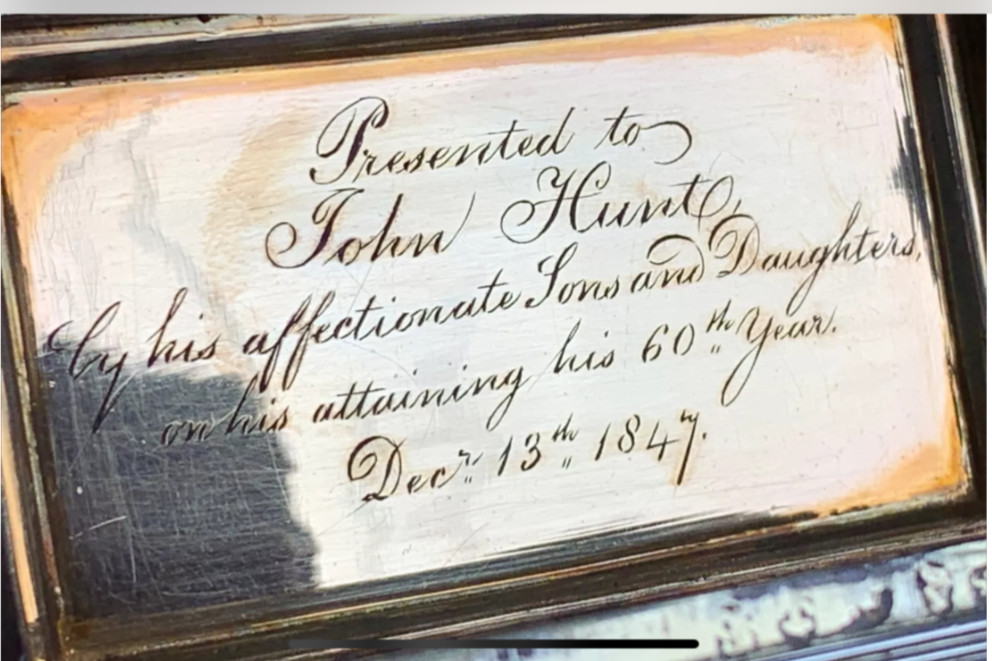 Presented to
John Hunt,
by his affectionate Sons and Daughters,
on his attaining his 60th Year.
Decr. 13th 1847.